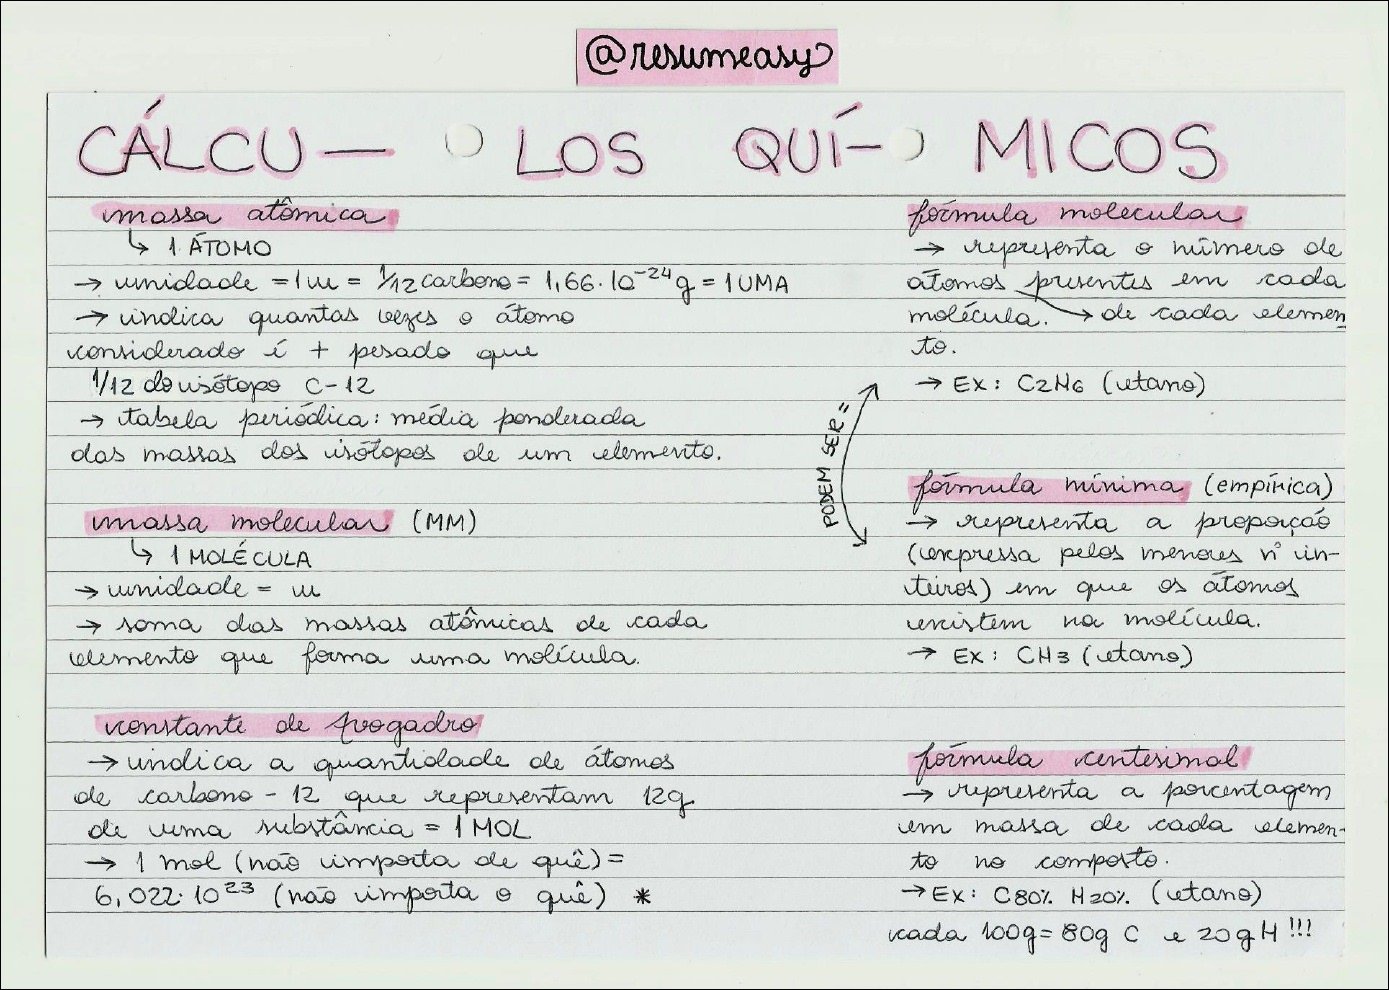 @resumeasy
CÁLCU— LOS QUÍ- MICOS
massa atômica
↳ 1 ÁTOMO
→ unidade = 1u = 1/12 carbono = 1,66·10⁻²⁴g = 1UMA
→ indica quantas vezes o átomo
considerado é + pesado que
1/12 do isótopo C-12
→ tabela periódica: média ponderada
das massas dos isótopos de um elemento.
massa molecular (MM)
↳ 1 MOLÉCULA
→ unidade = u
→ soma das massas atômicas de cada
elemento que forma uma molécula.
constante de avogadro
→ indica a quantidade de átomos
de carbono - 12 que representam 12g
de uma substância = 1 MOL
→ 1 mol (não importa de quê) =
6,022·10²³ (não importa o quê) *
fórmula molecular
→ representa o número de
átomos presentes em cada
molécula. → de cada elemen
to.
→ Ex: C2H6 (etano)
PODEM SER =
fórmula mínima (empírica)
→ representa a proporção
(expressa pelos menores nº in-
teiros) em que os átomos
existem na molécula.
→ Ex: CH3 (etano)
fórmula centesimal
→ representa a porcentagem
em massa de cada elemen-
to no composto.
→ Ex: C80% H20% (etano)
cada 100g = 80g C e 20g H !!!